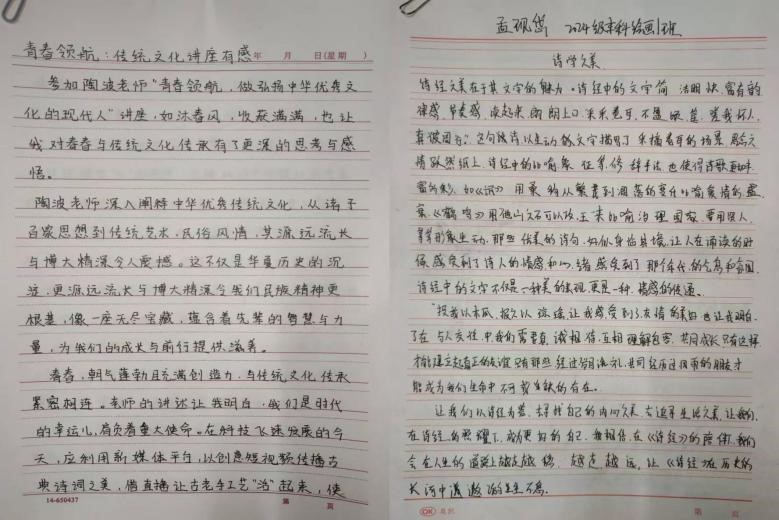 青春领航：传统文化讲座有感 年 月 日(星期 )
参加陶波老师“青春领航，做弘扬中华优秀文
化的现代人”讲座，如沐春风，收获满满，也让
我对青春与传统文化传承有了更深的思考与感
悟。
陶波老师深入阐释中华优秀传统文化，从诸子
百家思想到传统艺术、民俗风情，其源远流长
与博大精深令人震撼。这不仅是华夏历史的沉
迹，更源远流长与博大精深令我们民族精神更
根基，像一座无尽宝藏，蕴含着先辈的智慧与力
量，为我们的成长与前行提供滋养。
青春，朝气蓬勃且充满创造力，与传统文化传承
紧密相连。老师的讲述让我明白，我们是时代
的幸运儿，肩负着重大使命。在科技飞速发展的今
天，应利用新媒体平台，以创意短视频传播古
典诗词之美，借直播让古老手工艺“活”起来，使
14-650437 第 页
孟珮岱 2024级本科绘画1班
诗学久美
诗经久美在于其文字的魅力。诗经中的文字简洁明快，富有韵
律感，节奏感，读起来，朗朗上口。采采卷耳，不盈顷筐，嗟我怀人，
寘彼周行。这句诗以生动的文字描写了采摘卷耳的场景，
情跃然纸上，诗经中的比喻象征等修辞手法也使得诗歌更加丰
富多彩，如《氓》用桑的从繁茂到凋落的变化比喻爱情的盛
衰，《鹤鸣》用他山之石可以攻玉来比喻治理国家，要用贤人，
形象生动，那些优美的诗句，如临身临其境，让人在诵读的时
候感受到了诗人的情感和心绪感受到了那个年代的气息和氛围
诗经中的文字不仅是一种美的表现更是一种情感的传递。
“投我以木瓜，报之以琼琚，让我感受到了友情的美好也让我明白
了在与人交往中我们需要真诚相待，互相理解包容，共同成长只有这样
才能建立起真正的友谊只有那些经过岁月洗礼，共同经历过风雨的朋友才
能成为我们生命中不可或缺的存在。
让我们以诗经为基，寻找自己的内心久美去追寻生活久美，让我们
在诗经的照耀下，成为更好的自己，我相信，在《诗经》的陪伴，我们
会在人生的道路上越走越稳，越走越远，让《诗经》在历史的
长河中生生不息。
OK 第 页